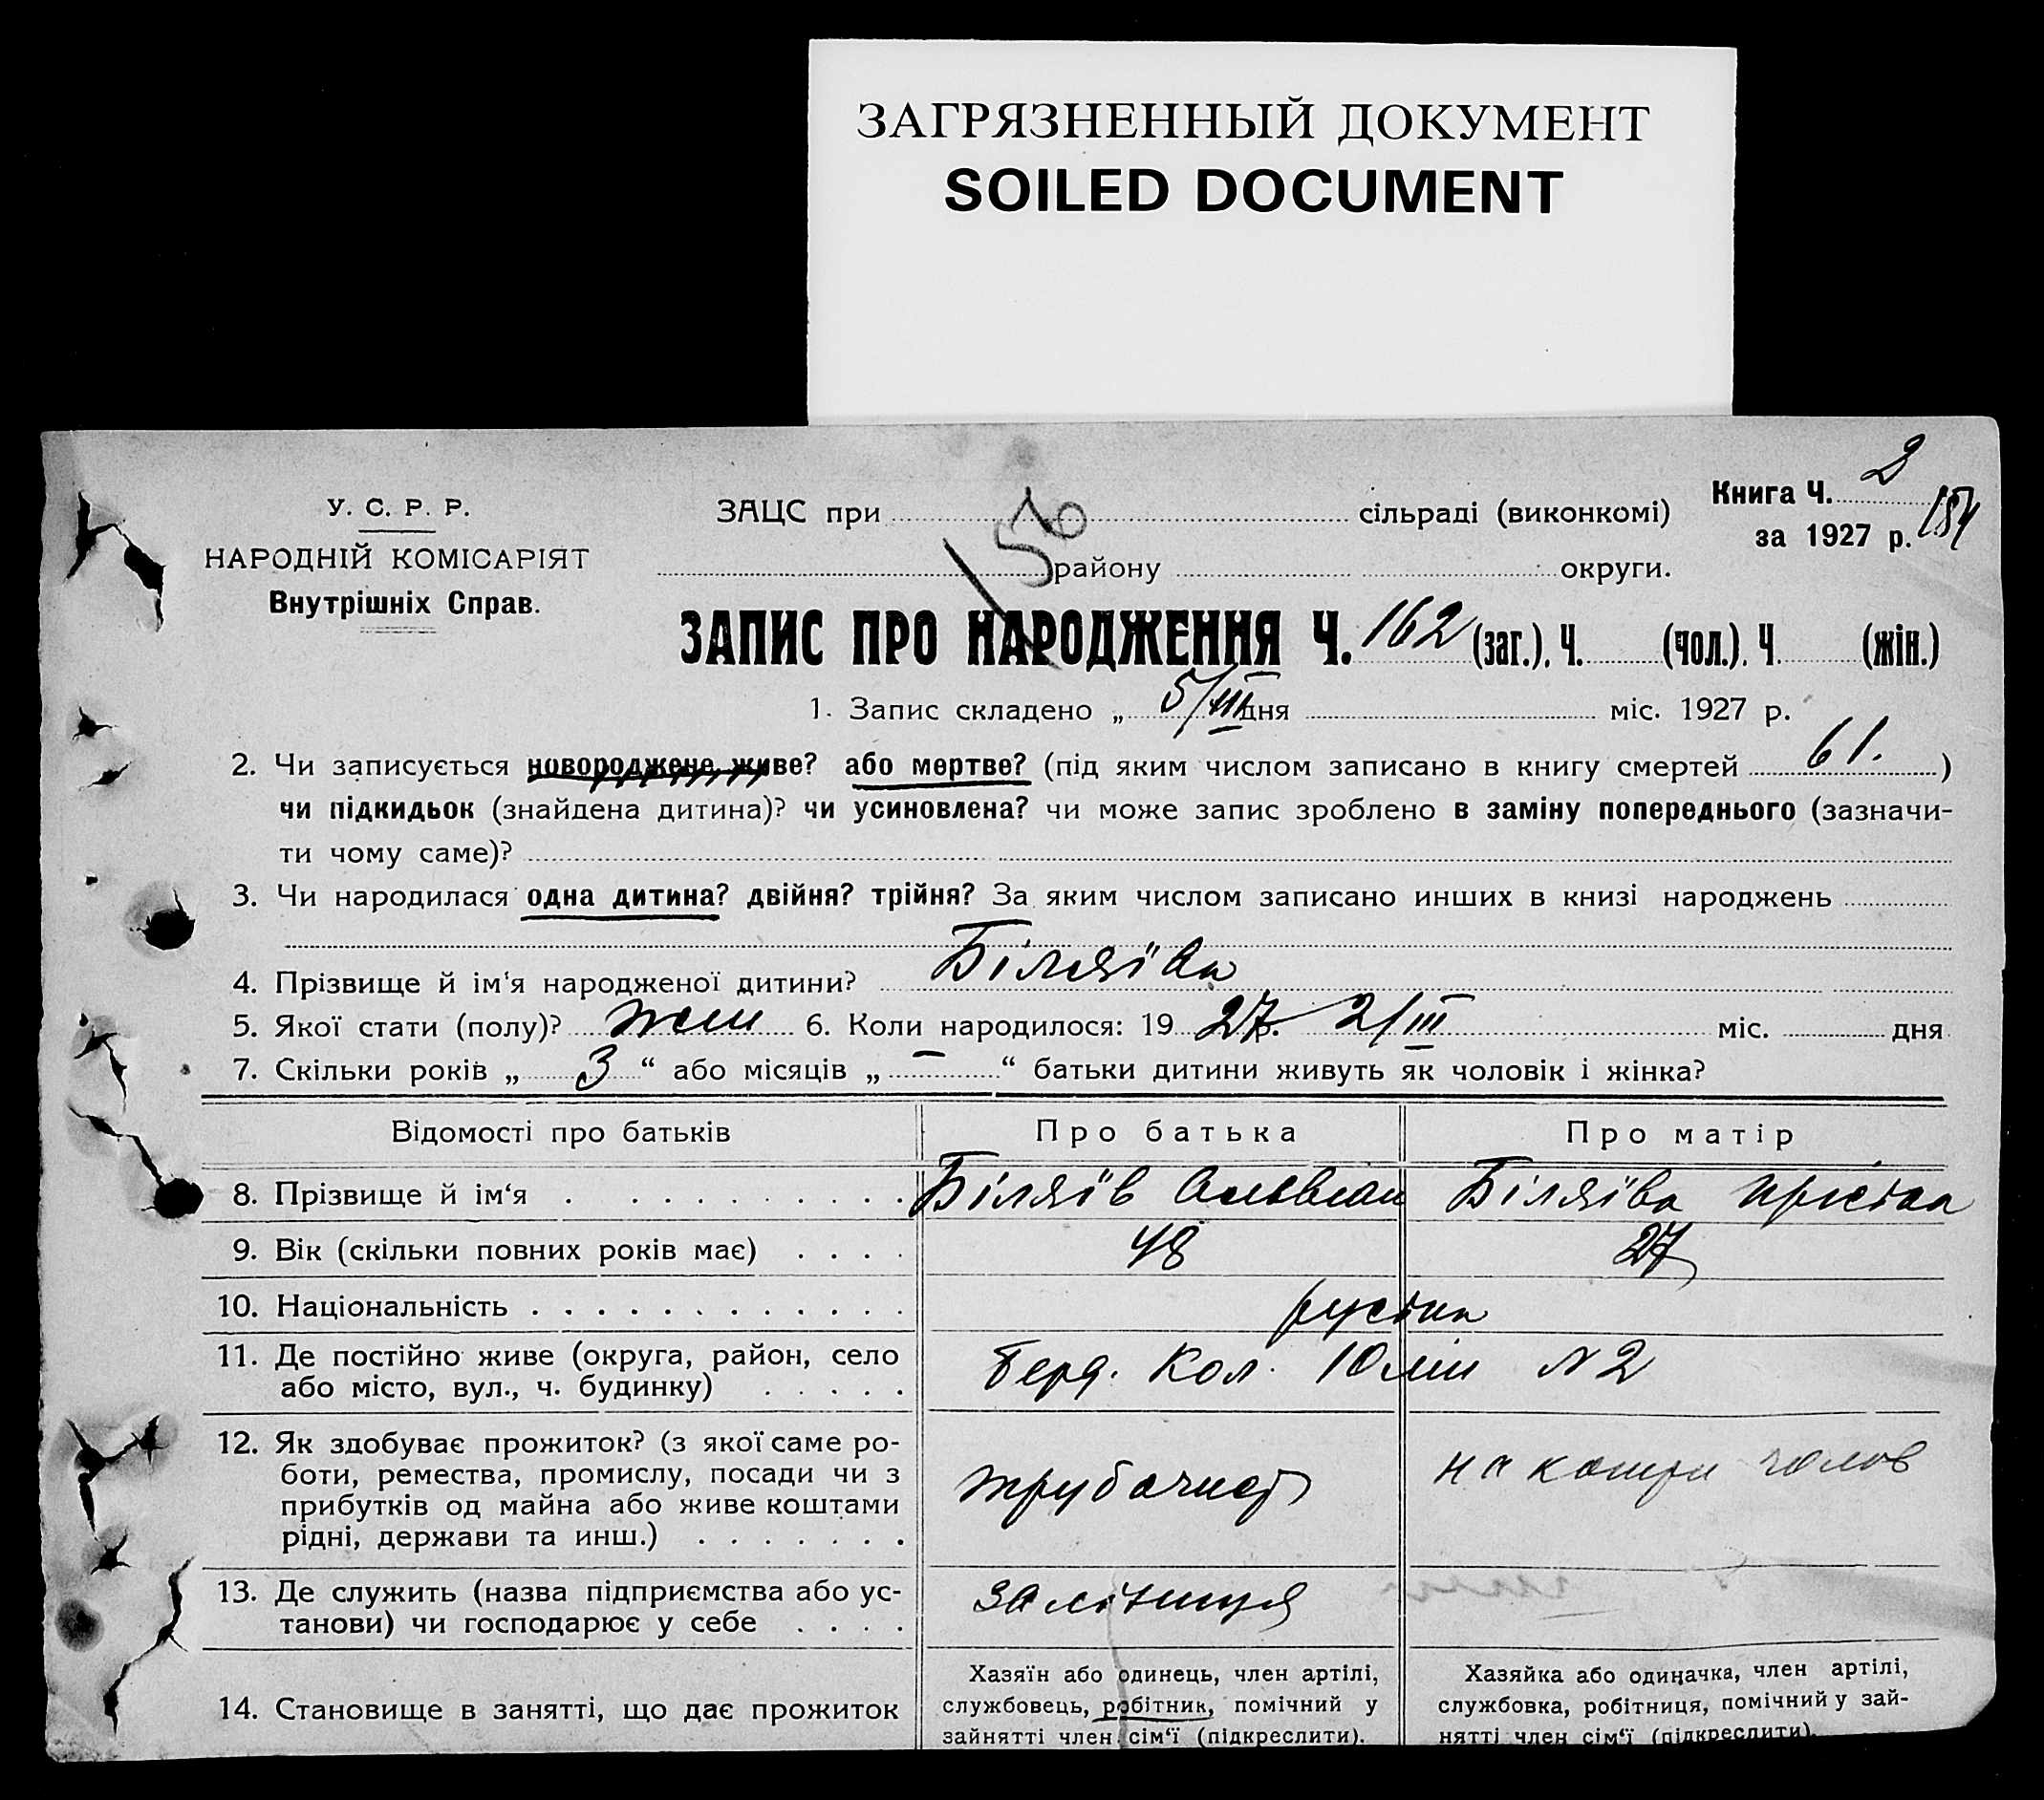 ЗАГРЯЗНЕННЫЙ ДОКУМЕНТ
SOILED DOCUMENT
У. С. Р. Р.
НАРОДНІЙ КОМІСАРІЯТ
Внутрішніх Справ.
ЗАЦС при сільраді (виконкомі)
району округи.
150
Книга Ч. 2
за 1927 р. 154
ЗАПИС ПРО НАРОДЖЕННЯ Ч. 162 (заг.). Ч. (чол.). Ч. (жін.)
1. Запис складено „ 5/III дня міс. 1927 р.
2. Чи записується новороджене живе? або мертве? (під яким числом записано в книгу смертей 61. )
чи підкидьок (знайдена дитина)? чи усиновлена? чи може запис зроблено в заміну попереднього (зазначи-
ти чому саме)?
3. Чи народилася одна дитина? двійня? трійня? За яким числом записано инших в книзі народжень
4. Прізвище й ім‘я народженої дитини? Біляїва
5. Якої стати (полу)? жін 6. Коли народилося: 19 27 р. 2/III міс. дня
7. Скільки років „ 3 “ або місяців „ — “ батьки дитини живуть як чоловік і жінка?
Відомості про батьків Про батька Про матір
8. Прізвище й ім‘я Біляїв Біляїва
9. Вік (скільки повних років має) 48 27
10. Національність
11. Де постійно живе (округа, район, село
або місто, вул., ч. будинку)
Берд. Кол. N 2
12. Як здобуває прожиток? (з якої саме ро-
боти, ремества, промислу, посади чи з
прибутків од майна або живе коштами
рідні, держави та инш.)
трубочист
на кошти чолов
13. Де служить (назва підприємства або ус-
танови) чи господарює у себе
залізниця
14. Становище в занятті, що дає прожиток
Хазяїн або одинець, член артілі,
службовець, робітник, помічний у
зайнятті член сім‘ї (підкреслити).
Хазяйка або одиначка, член артілі,
службовка, робітниця, помічний у зай-
нятті член сім‘ї (підкреслити).